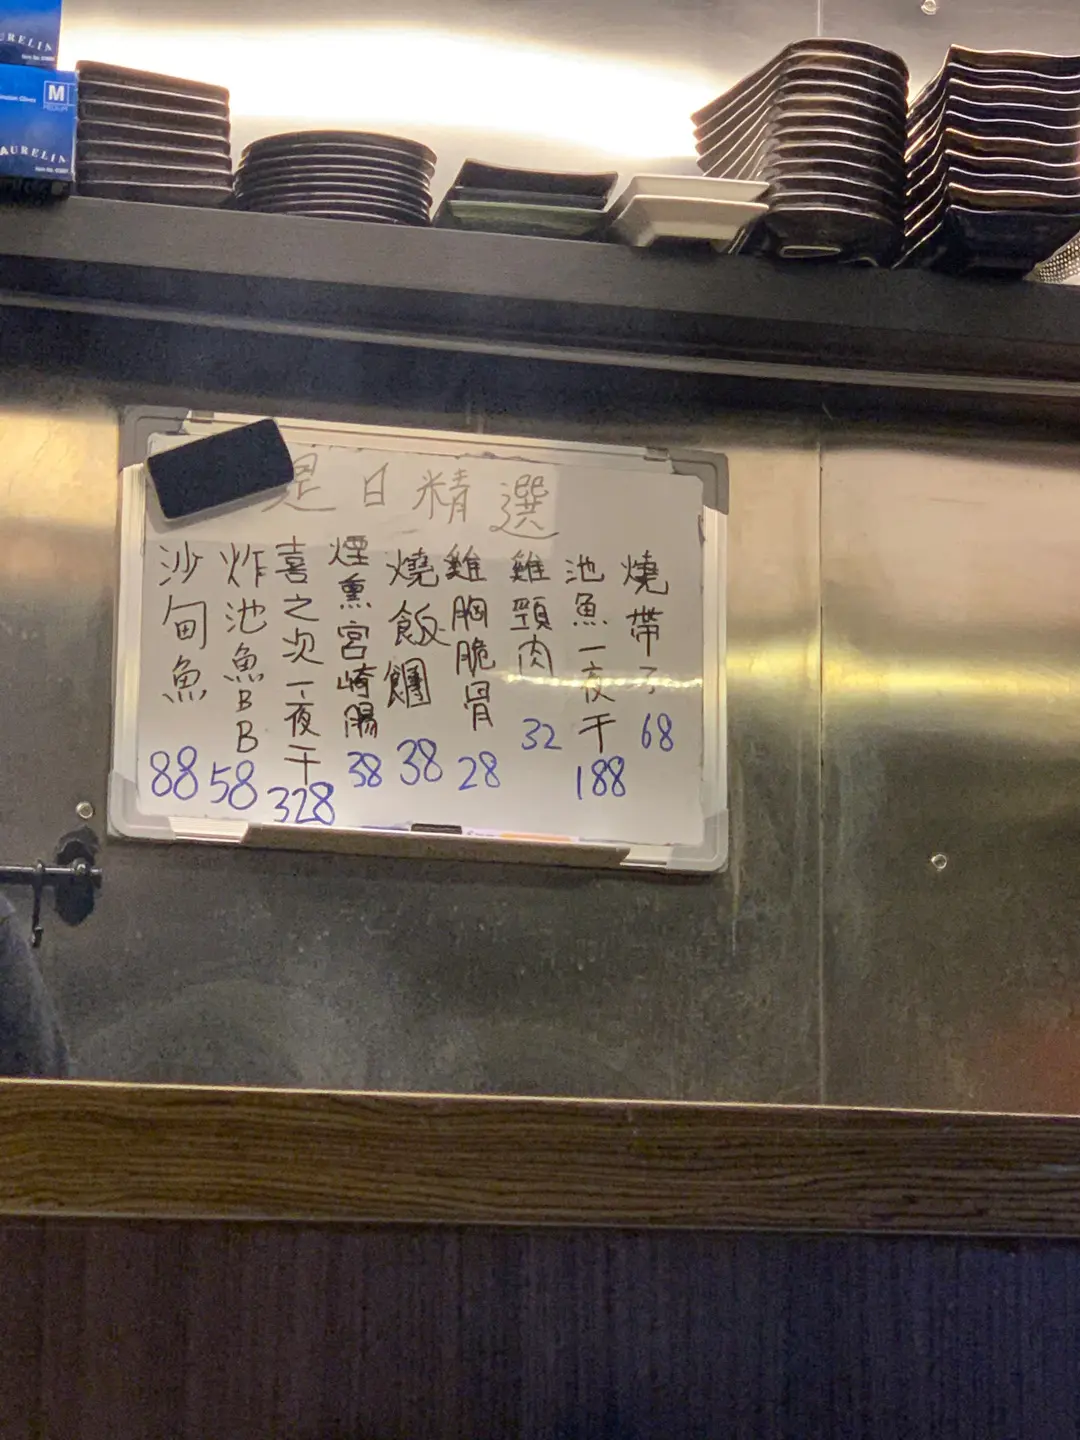 URELIA
M
MEDIUM
AURELIA
是日精選
沙甸魚
88
炸池魚BB
58
喜之次一夜干
328
煙熏宮崎腸
38
燒飯糰
38
雞胸脆骨
28
雞頸肉
32
池魚一夜干
188
燒帶子
68